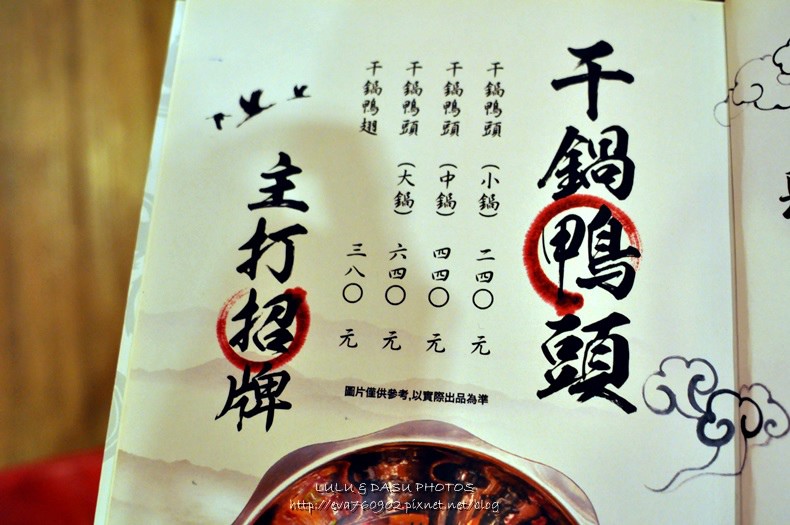 干鍋鴨頭
干鍋鴨頭 (小鍋) 二四〇 元
干鍋鴨頭 (中鍋) 四四〇 元
干鍋鴨頭 (大鍋) 六四〇 元
干鍋鴨翅 三八〇 元
主打招牌
圖片僅供參考,以實際出品為準
LULU & DASU PHOTOS
http://eva760902.pixnet.net/blog